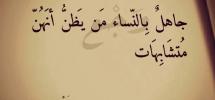 جاهلٌ بِالنّساء مَن يَظنُّ أنّهُنّ
مُتشَابِهَات